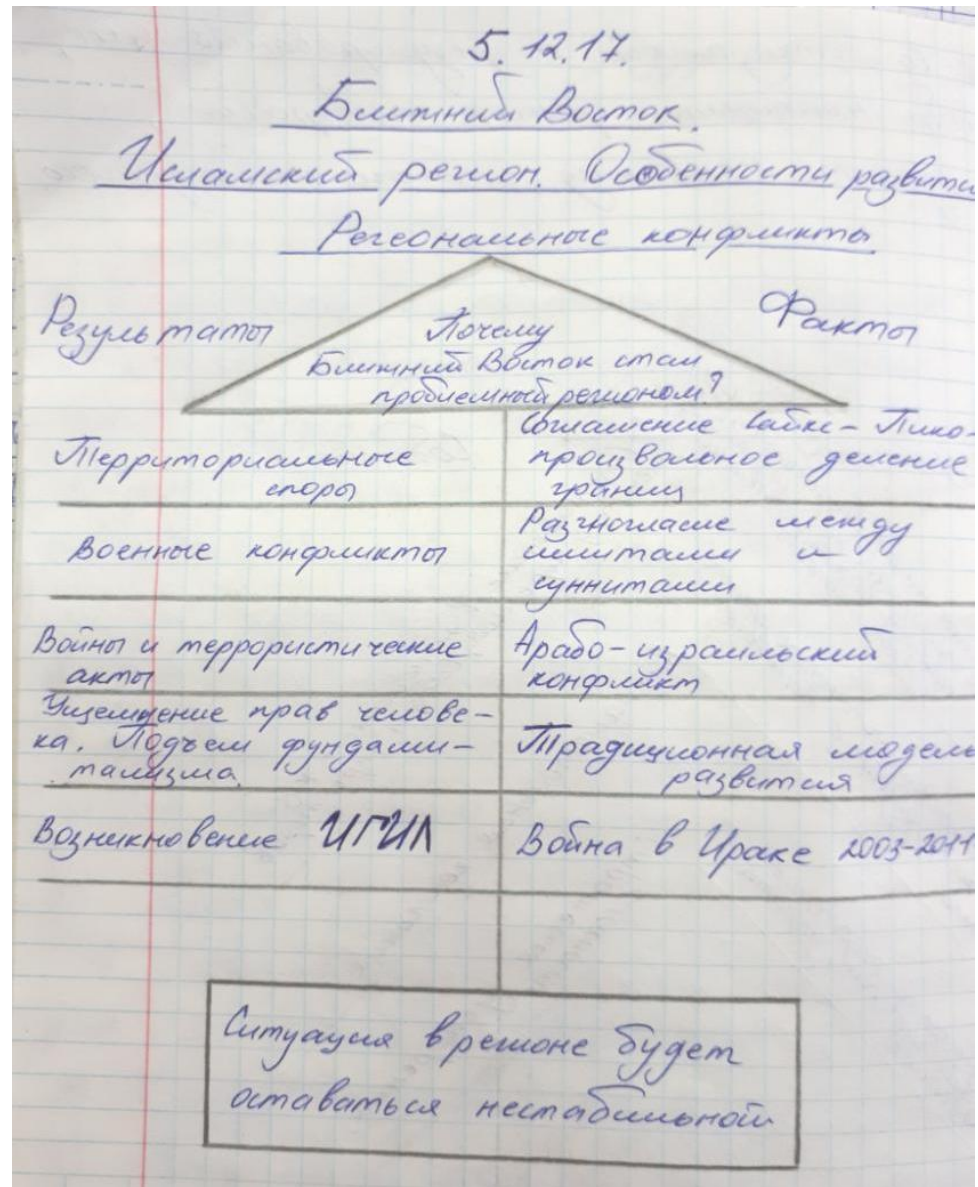 5.12.17.
Ближний Восток.
Исламский регион. Особенности развити
Регеональные конфликты.
Результаты
Факты
Почему
Ближний Восток стал
проблемный регионом?
Территориальные
споры
Соглашение Сайкс-Пико-
произвольное деление
границ
Военные конфликты
Разгногласие между
шиитами и
суннитами
Войны и террористические
акты
Арабо-израильский
конфликт
Ущемление прав челове-
ка. Подъем фундами-
тализма.
Традиционная модель
развития
Возникновение ИГИЛ
Война в Ираке 2003-2011
Ситуация в регионе будет
оставаться нестабильной